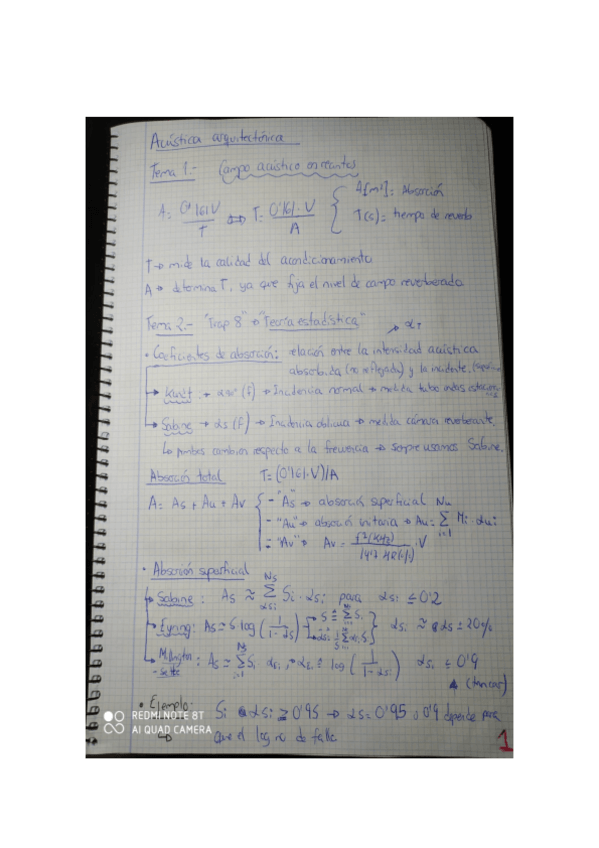 Acústica arquitectónica
Tema 1.- Campo acústico en recintos
A = 0'161 V / T ⇔ T = 0'161 · V / A { A[m²] = Absorción
T(s) = tiempo de reverb
T → mide la calidad del acondicionamiento
A → determina T, ya que fija el nivel de campo reverberado
Tema 2.- "Trap 8" → "Teoría estadística"
→ αT
• Coeficientes de absorción: relación entre la intensidad acústica
absorbida (no reflejada) y la incidente.
→ Kundt → (f) → Incidencia normal → medida tubo ondas
→ Sabine → αs (f) → Incidencia oblicua → medida cámara reverberante.
↳ ambos cambian respecto a la frecuencia → siempre usamos Sabine.
Absorción total T = (0'161 · V)/A
A = As + Au + Av { - "As" → absorción superficial Nu
- "Au" → absorción unitaria → Au = Σ Mi · αui
i=1
- "Av" → Av = f²(kHz) / 14'7 HR(%) · V
• Absorción superficial
→ Sabine: As ≈ Σ Si · αsi para αsi ≤ 0'2
→ Eyring: As ≈ S log (1 / 1-αs) αsi ≈ αs ± 20%
→ Millington - Sette: As ≈ Σ Si αsi log (1 / 1-αsi) αsi ≤ 0'9
(truncar)
• Ejemplo: Si αsi ≥ 0'95 → αs = 0'95 o 0'9 depende para
que el log no de fallo
REDMI NOTE 8T
AI QUAD CAMERA
1